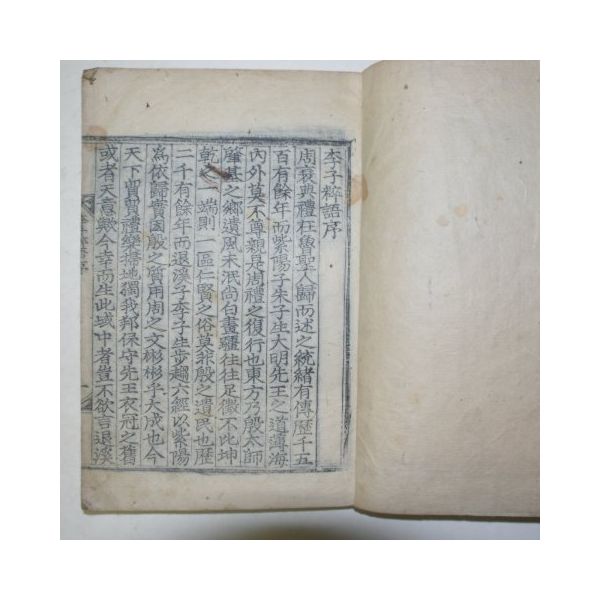 李子粹語序
周衰典禮在魯聖人歸而述之統緒有傳歷千五
百有餘年而紫陽子朱子生大明先王之道薄海
內外莫不尊親是周禮之復行也東方乃殷太師
肇基之鄕遺風未泯尚白畫疆往往足徵不比坤
乾之一端則一區仁賢之俗莫非殷之遺民也歷
二千有餘年而退溪子李子生步趨六經以紫陽
爲依歸賁國殷之質用周之文彬彬乎大成也今
天下貿貿禮樂掃地獨我邦保守先王衣冠之舊
或者天意幾今幸而生此域中者豈不欲言退溪